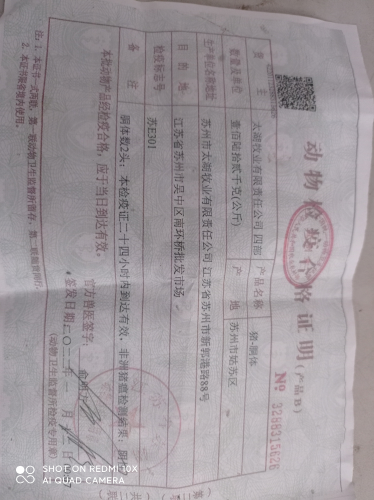 动物检疫合格证明(产品B)
№ 3268315628
货主 太湖牧业有限责任公司 四部 产品名称 猪-胴体
数量及单位 壹佰陆拾贰千克(公斤) 产地 苏州市姑苏区
生产单位名称地址 苏州市太湖牧业有限责任公司 江苏省苏州市新郭港路88号
目的地 江苏省苏州市吴中区南环桥批发市场
检疫标志号 苏E301
备注 胴体数2头;本检疫证二十四小时内到达有效。非洲猪瘟检测结果:阴
本批动物产品经检疫合格,应于当日到达有效。
官方兽医签字:
签发日期:二〇二一年一月十二日
(动物卫生监督所检疫专用章)
注:1、本证书一式两联,第一联动物卫生监督所留存,第二联随货同行。
2、本证书限省境内使用。
SHOT ON REDMI 10X
AI QUAD CAMERA